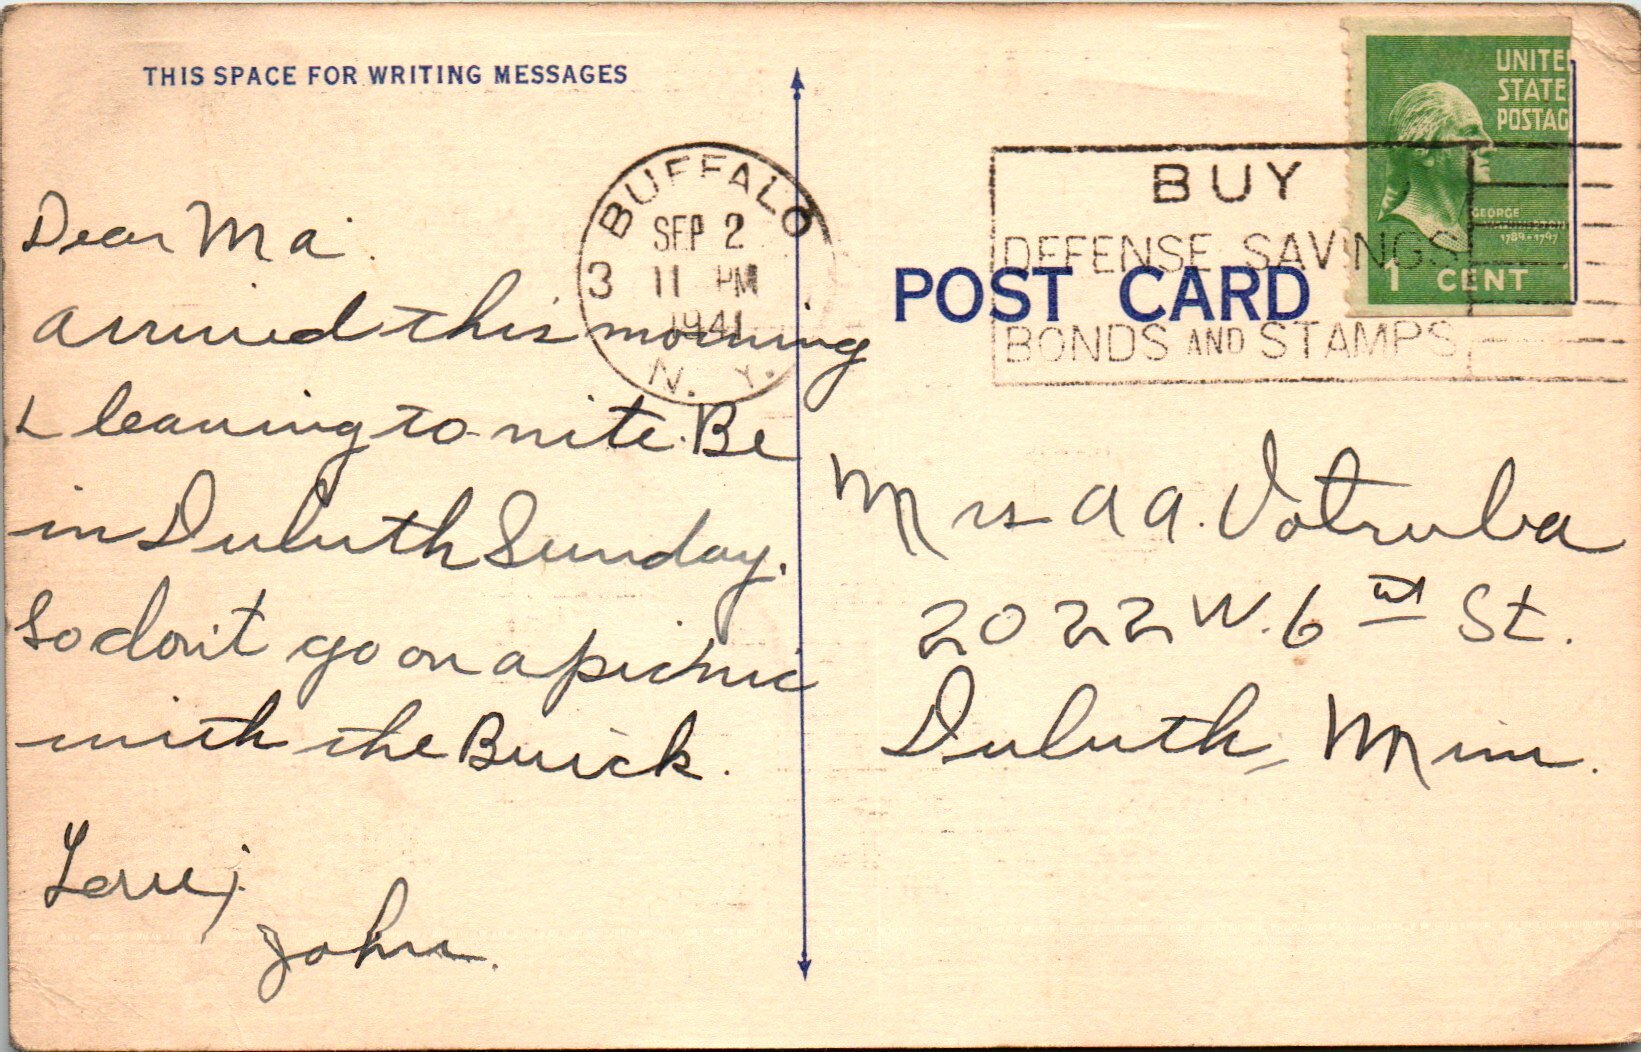 THIS SPACE FOR WRITING MESSAGES
Dear Ma.
arrived this morning
& leaving to-nite. Be
in Duluth Sunday.
So don't go on a picnic
with the Buick.
Love,
John.
BUFFALO
SEP 2
3 11 PM
1941
N. Y.
BUY
DEFENSE SAVINGS
BONDS AND STAMPS
UNITE
STATE
POSTAG
GEORGE
WASHINGTON
1789-1797
1 CENT
POST CARD
Mrs A A. Votruba
2022 W. 6 St.
Duluth, Minn.